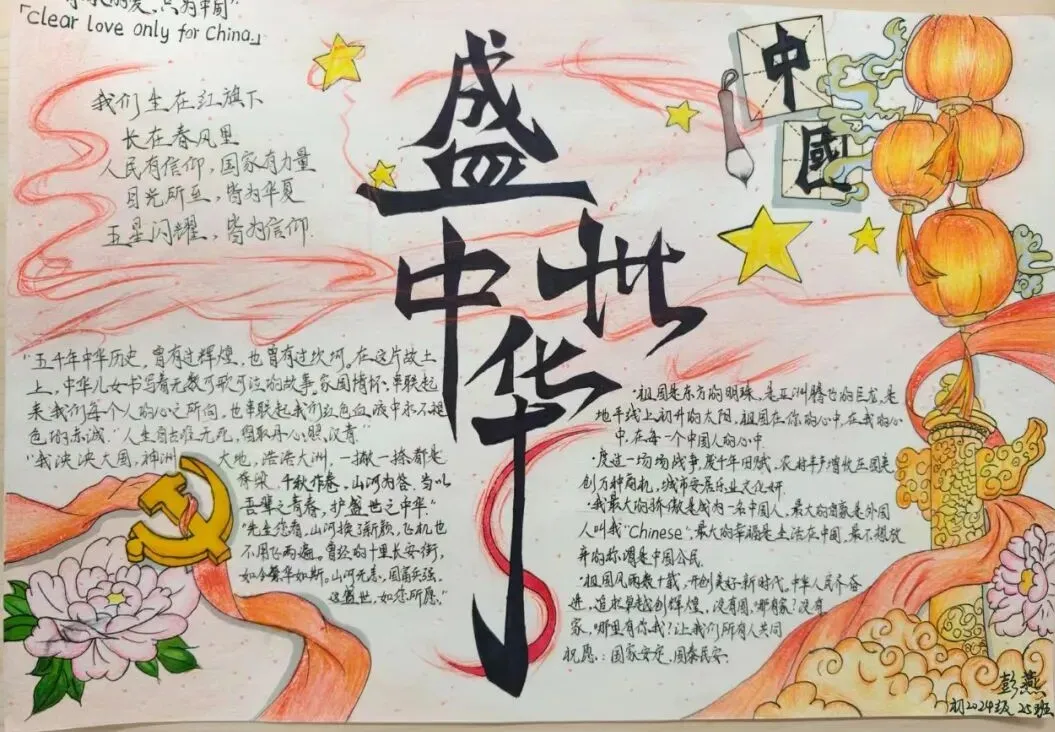 的爱，只为中国"
「clear love only for China.」
我们生在红旗下
长在春风里
人民有信仰，国家有力量
目光所至，皆为华夏
五星闪耀，皆为信仰.
盛世
中华
中
國
"五千年中华历史，曾有过辉煌，也曾有过坎坷。在这片故土
上，中华儿女书写着无数可歌可泣的故事。家国情怀，串联起
来我们每个人的心之所向，也串联起我们红色血液中永不褪
色的赤诚。"人生自古谁无死，留取丹心照汗青"
"我泱泱大国，神洲大地，浩浩大洲，一撇一捺都是
脊梁。千秋作卷，山河为答。当以
吾辈之青春，护盛世之中华."
"先生您看，山河换了新颜，飞机也
不用飞两遍。曾经的十里长安街，
如今繁华如斯。山河无恙，国富兵强。
这盛世，如您所愿。"
·祖国是东方的明珠，是亚洲腾飞的巨龙，是
地平线上初升的太阳，祖国在你的心中，在我的心
中，在每一个中国人的心中
·度过一场场战争，废千年田赋，农村丰产增收
创万种商机，城市安居乐业
·我最大的骄傲是成为一名中国人，最大的自豪是外国
人叫我"Chinese"，最大的幸福是生活在中国，最不想放
弃的称谓是中国公民
·祖国风雨数十载，开创美好新时代。中华人民齐奋
进，追求卓越创辉煌，没有国，哪有家？没有
家，哪里有你我？让我们所有人共同
祝愿：国家安定，国泰民安.
彭燕
初2024级 25班